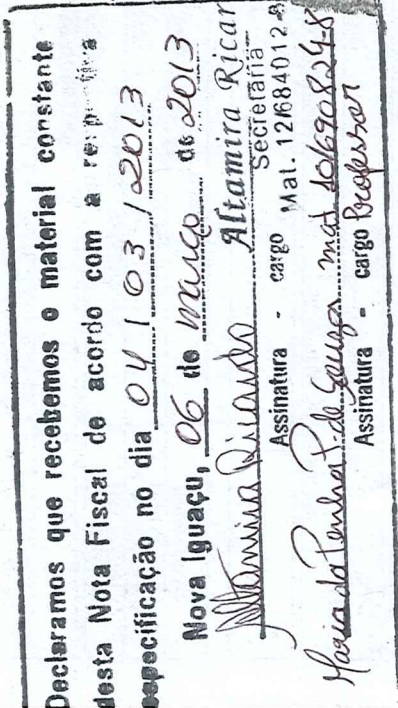 Declaramos que recebemos o material constante
desta Nota Fiscal de acordo com a respectiva
especificação no dia 04 / 03 / 2013
Nova Iguaçu, 06 de março de 2013
Altamira Ricardo Altamira Ricar
Assinatura - cargo Secretária
Mat. 12/684012-8
Maria da Penha P. de Souza mat 10/690824-8
Assinatura - cargo Professor